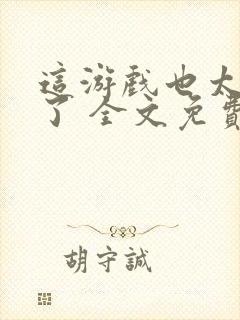 這游戲也太
了 全文免費
胡守誠